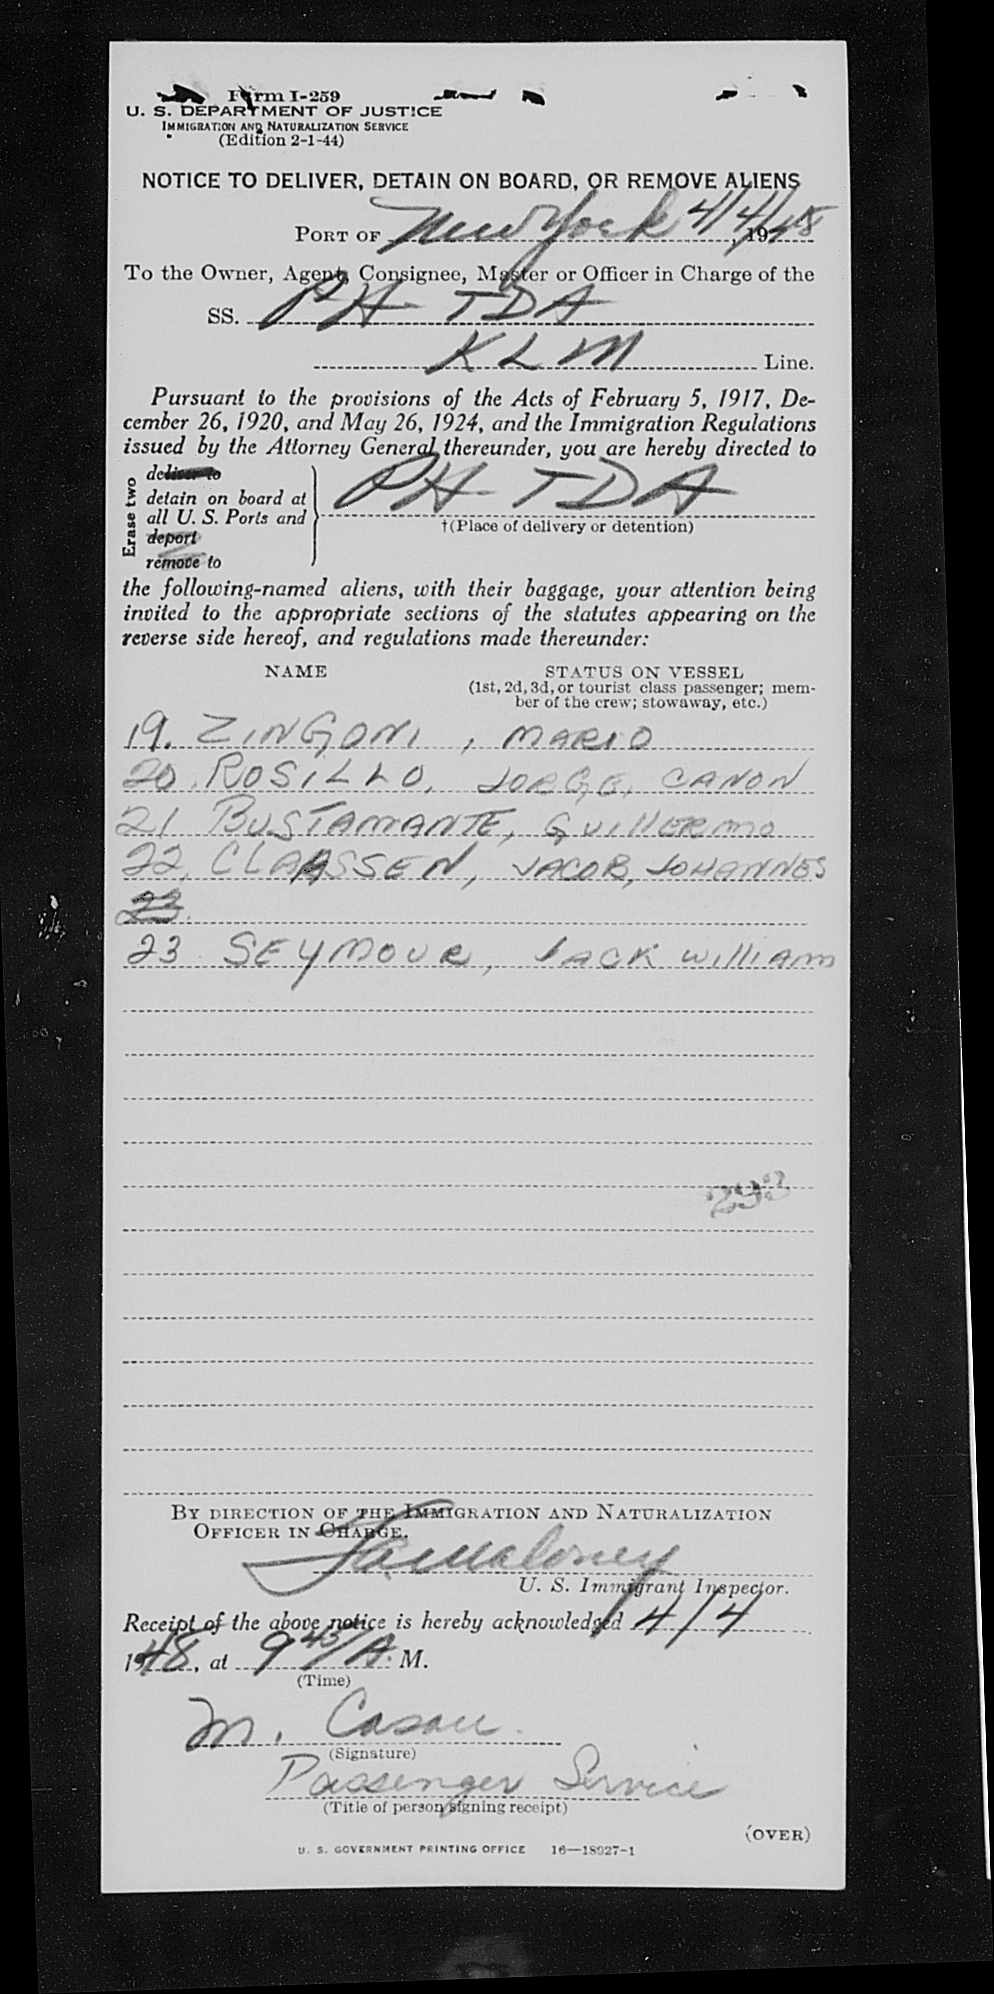 Form I-259
U. S. DEPARTMENT OF JUSTICE
IMMIGRATION AND NATURALIZATION SERVICE
(Edition 2-1-44)
NOTICE TO DELIVER, DETAIN ON BOARD, OR REMOVE ALIENS
PORT OF New York 4/4/48, 19
To the Owner, Agent, Consignee, Master or Officer in Charge of the
SS. PH TDA
KLM Line.
Pursuant to the provisions of the Acts of February 5, 1917, De-
cember 26, 1920, and May 26, 1924, and the Immigration Regulations
issued by the Attorney General thereunder, you are hereby directed to
Erase two
deliver to
detain on board at
all U. S. Ports and
deport
remove to
PH TDA
†(Place of delivery or detention)
the following-named aliens, with their baggage, your attention being
invited to the appropriate sections of the statutes appearing on the
reverse side hereof, and regulations made thereunder:
NAME STATUS ON VESSEL
(1st, 2d, 3d, or tourist class passenger; mem-
ber of the crew; stowaway, etc.)
19. ZINGONI, MARIO
20. ROSILLO, JORGE, CANON
21 BUSTAMANTE, GUILLERMO
22. CLAASSEN, JACOB, JOHANNES
23.
23 SEYMOUR, JACK WILLIAM
233
BY DIRECTION OF THE IMMIGRATION AND NATURALIZATION
OFFICER IN CHARGE.
Maloney
U. S. Immigrant Inspector.
Receipt of the above notice is hereby acknowledged 4/4
1948, at 9 45/A. M.
(Time)
M. Casau
(Signature)
Passenger Service
(Title of person signing receipt)
(OVER)
U. S. GOVERNMENT PRINTING OFFICE 16—18927-1